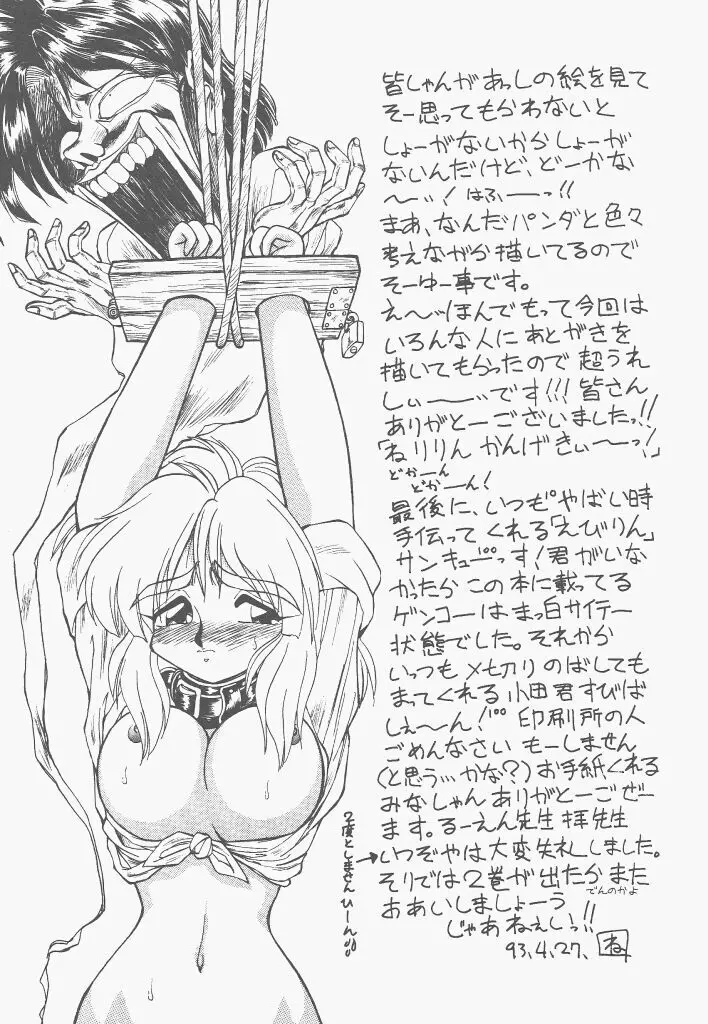 皆しゃんがあっしの絵を見て
そー思ってもらわないと
しょーがないからしょーが
ないんだけど、どーかな
〜ッ！はふーーっ!!
まあ、なんだパンダと色々
考えながら描いてるので
そーゆー事です。
え〜ッほんでもって今回は
いろんな人にあとがきを
描いてもらったので超うれ
しぃーーーッです!!!皆さん
ありがとーございましたっ!!
「ねりりんかんげきぃーーっ!」
どかーん
どかーん!
最後に、いつも"やばい時
手伝ってくれる「えびりん」
サンキューっす!君がいな
かったらこの本に載ってる
ゲンコーはまっ白サイテー
状態でした。それから
いっつも〆切りのばしても
まってくれる小田君すびば
しぇ〜ん!゛印刷所の人
ごめんなさいもーしません
(と思う…かな?)お手紙くれる
みなしゃんありがとーごぜー
ます。るーえん先生拝先生
いつぞやは大変失礼しました。
そりでは2巻が出たらまた
でんのかよ
おあいしましょーう
じゃあねぇしぃっ!!
93.4.27. ね
2度としませんひーん